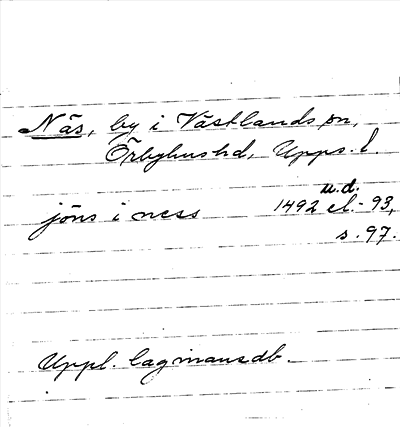 Näs, by i Västlands sn,
Örbyhus hd, Upps. l.
jöns i ness 1492 el. -93, u.d.
s. 97.
Uppl. lagmansdb.